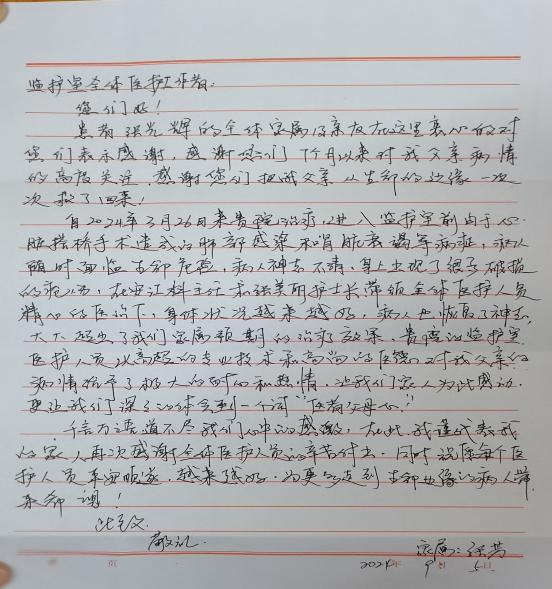 监护室全体医护工作者:
您们好!
患者张光辉的全体家属及亲友在这里衷心的对
您们表示感谢,感谢您们个月以来对我父亲病情
的高度关注,感谢您们把我父亲从死神的边缘一次
次救了回来!
自2024年3月26日来贵院治疗,进入监护室前由于心
脏搭桥手术造成的肺部感染和肾脏衰竭等病症,病人
随时面临死神危险,病人神志不清,身上出现了很多破损
的疮疡,在安江科主任和张美研护士长带领全体医护人员
精心的医治下,身体状况越来越好,病人也恢复了神志,
大大超出了我们家属预期的治疗效果,贵院的监护室
医护人员以高超的专业技术和高尚的医德对我父亲的
病情给予了极大的耐心和热情,让我们家人为此感动,
更让我们深深的体会到一个词“医者父母心”
千言万语道不尽我们心中的感激,在此,我谨代表我
的家人再次感谢全体医护人员的辛苦付出,同时祝愿每个医
护人员平安顺遂,越来越好,为更多走到死神边缘的病人带
来希望!
此致
敬礼
家属:张芳
页
2024年9月5日